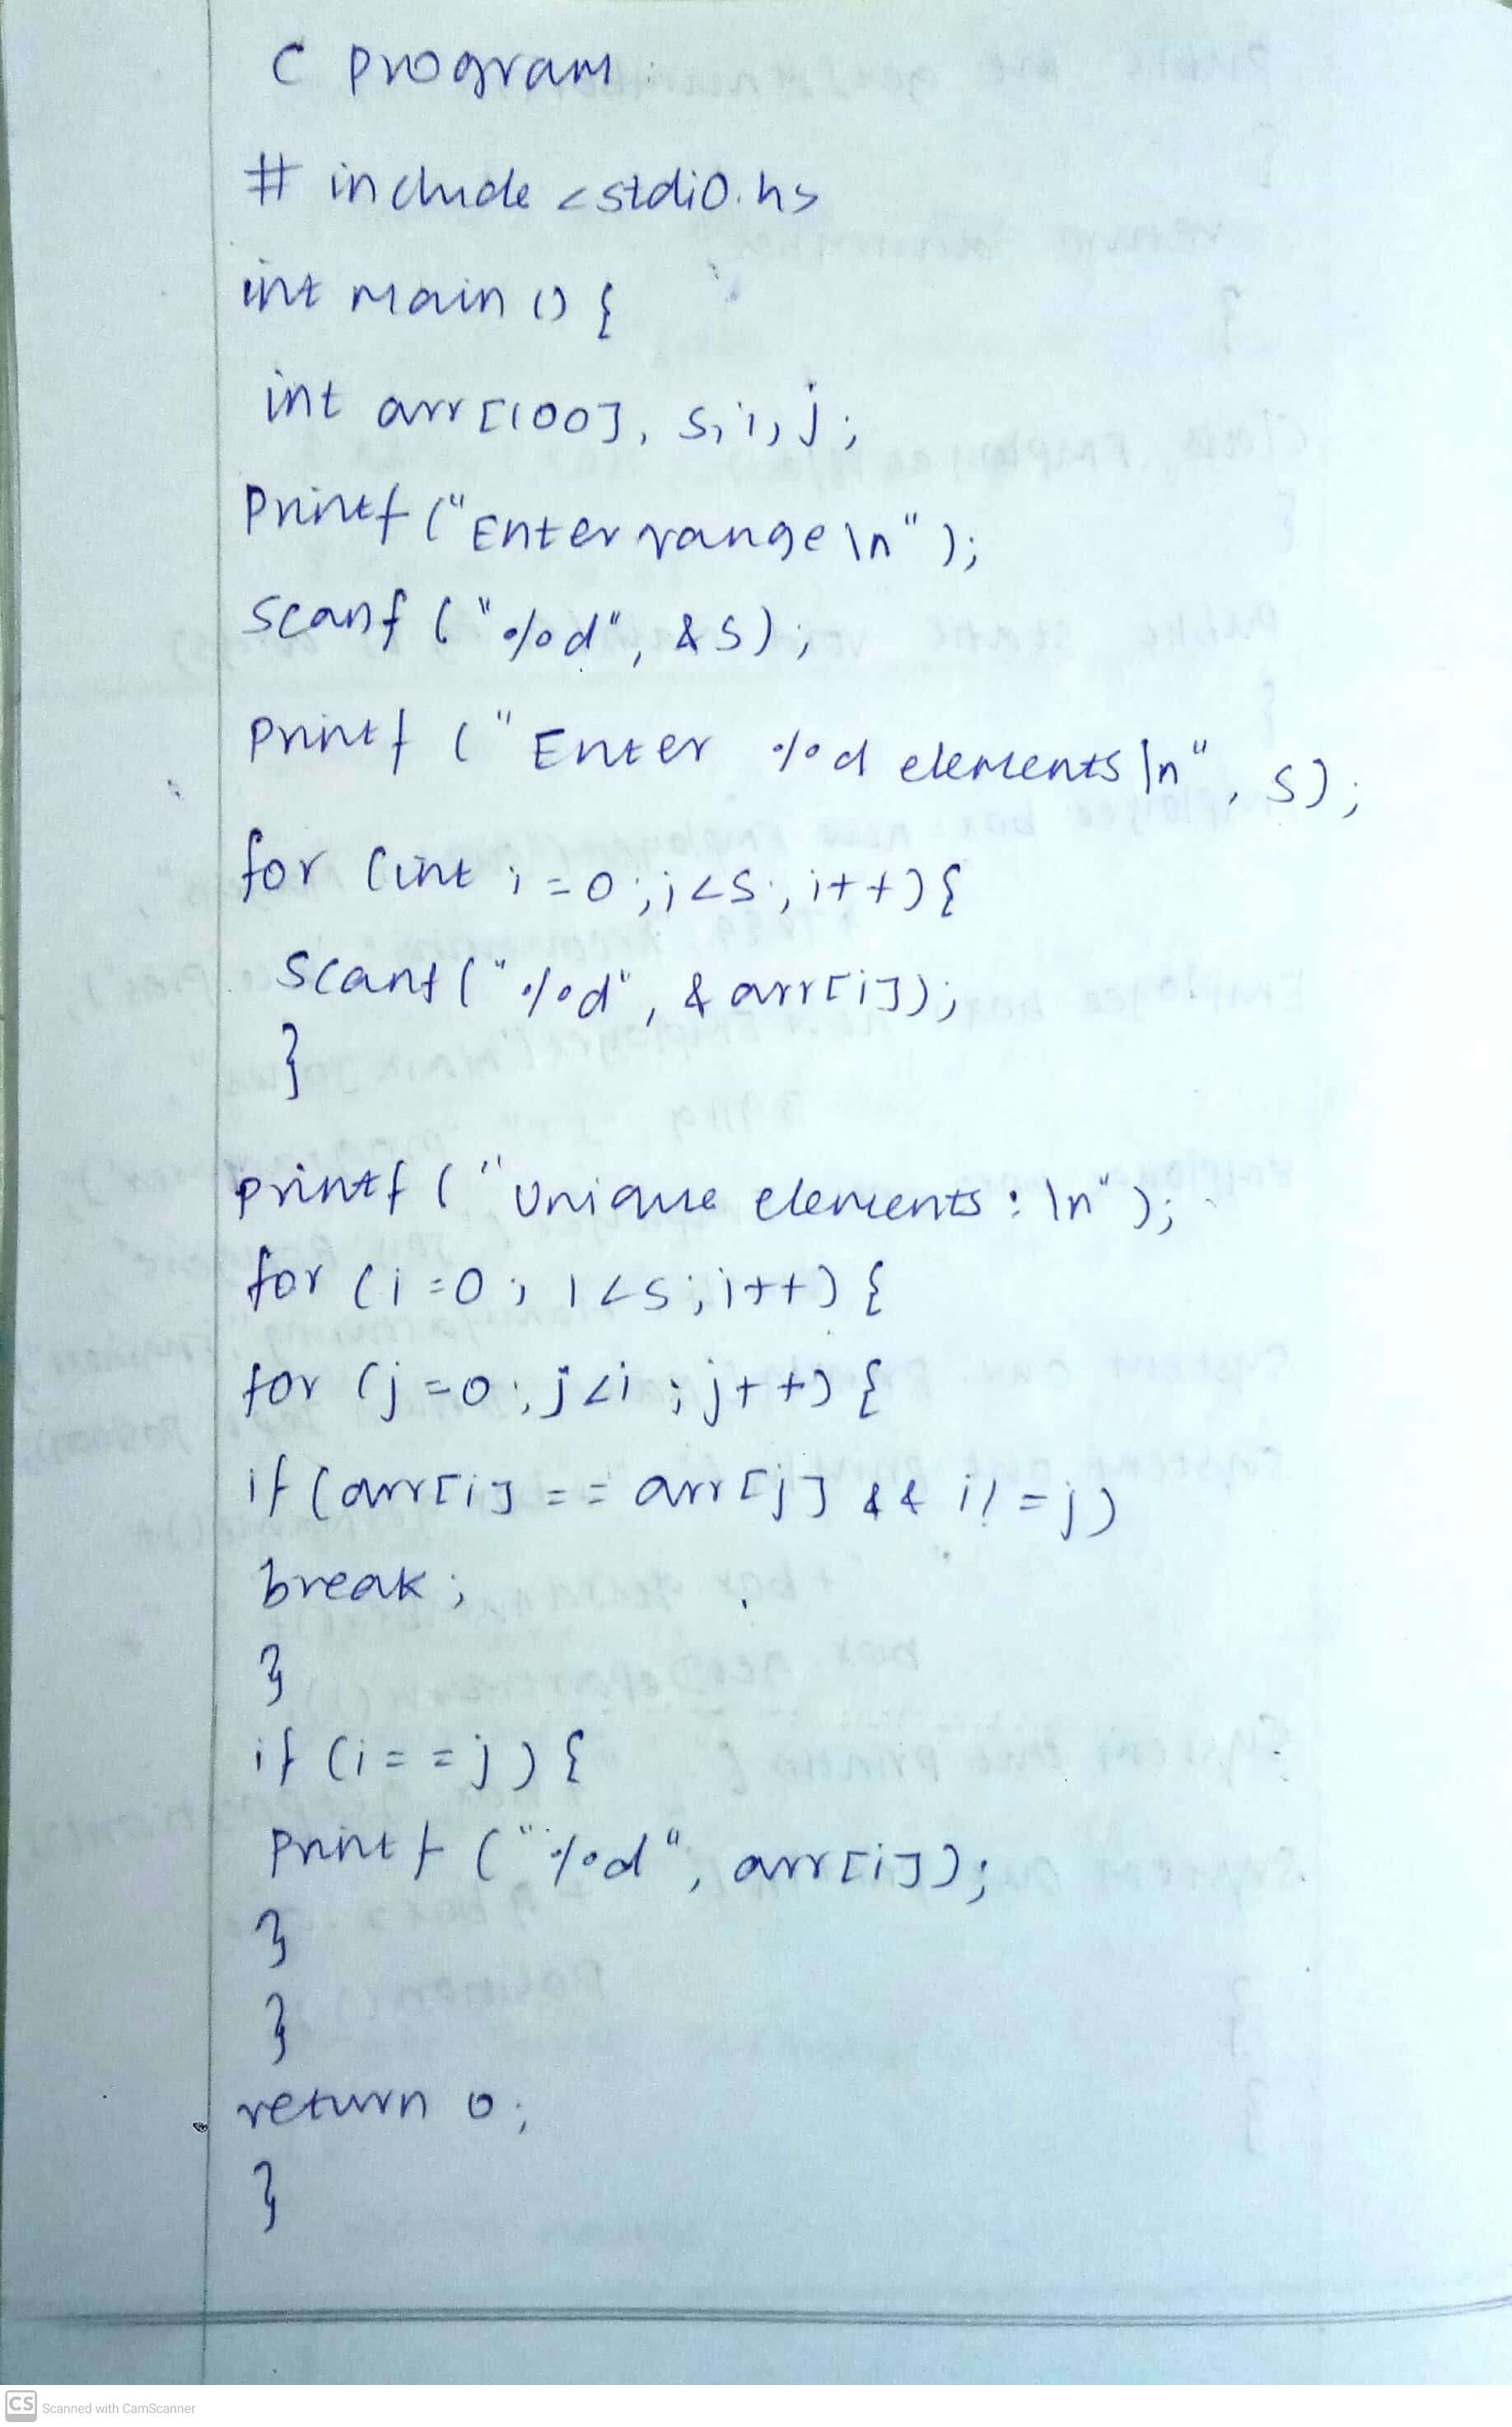 C program:
# include <stdio.h>
int main () {
int arr [100], s, i, j;
printf ("Enter range \n");
scanf ("%d", &s);
printf ("Enter %d elements \n", s);
for (int i=0; i<s; i++) {
scanf ("%d", &arr[i]);
}
printf ("Unique elements: \n");
for (i=0; i<s; i++) {
for (j=0; j<i; j++) {
if (arr[i] == arr[j] && i!=j)
break;
}
if (i==j) {
printf ("%d", arr[i]);
}
}
return 0;
}
CS Scanned with CamScanner